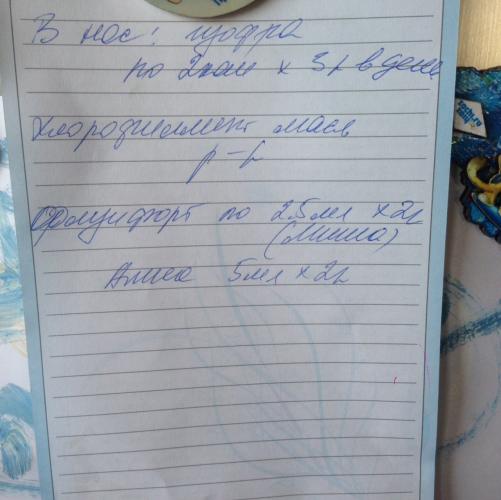 В нос: изофра
по 2 кап х 3 р в день
Хлорофиллипт масл
р-р
по 2.5 мл х 2р
(Миша)
Алиса 5мл х 2р